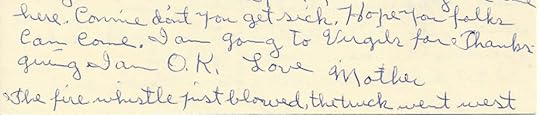 here. Connie don't you get sick. Hope you folks
can come. I am going to Virgils for Thanks-
giving I am O.K. Love Mother
The fire whistle just blowed, the truck went west